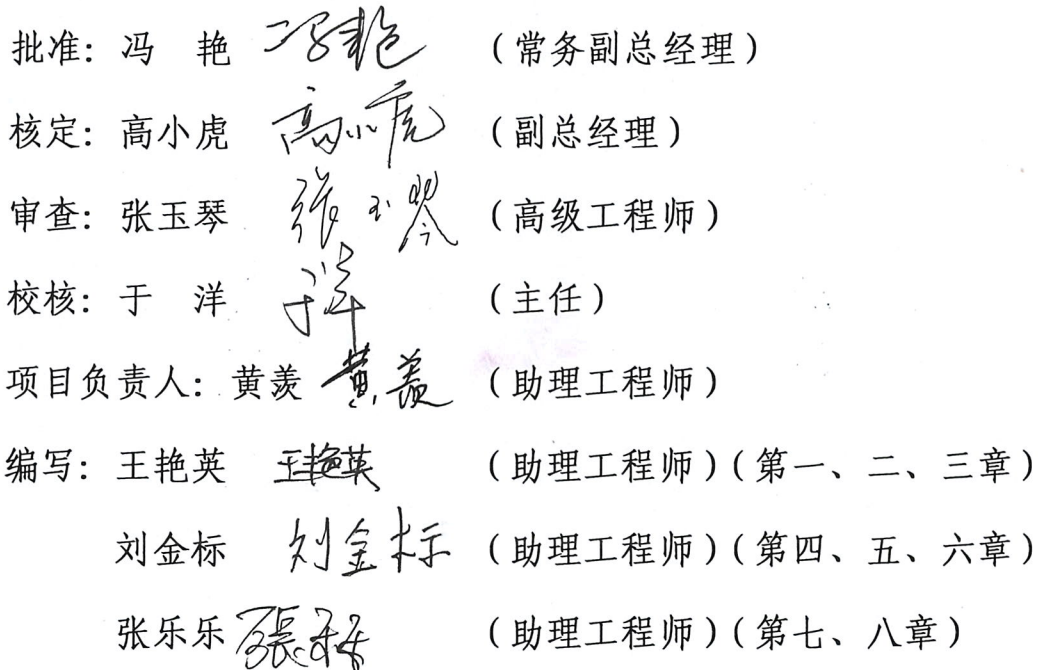 批准：冯　艳 冯艳 （常务副总经理）
核定：高小虎 高小虎 （副总经理）
审查：张玉琴 张玉琴 （高级工程师）
校核：于　洋 于洋 （主任）
项目负责人：黄羡 黄羡 （助理工程师）
编写：王艳英 王艳英 （助理工程师）（第一、二、三章）
刘金标 刘金标 （助理工程师）（第四、五、六章）
张乐乐 張乐乐 （助理工程师）（第七、八章）